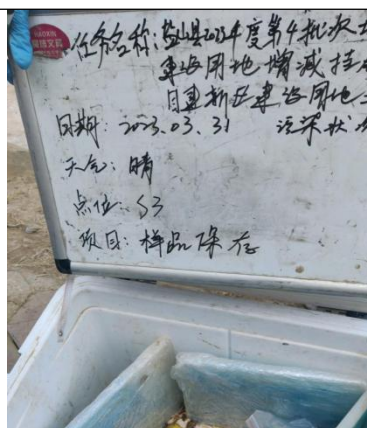 任务名称:盐山县2023年度第4批次土
建设用地增减挂
目建新区建设用地土
日期:2023.03.31 污染状况
天气:晴
点位:S3
项目:样品保存